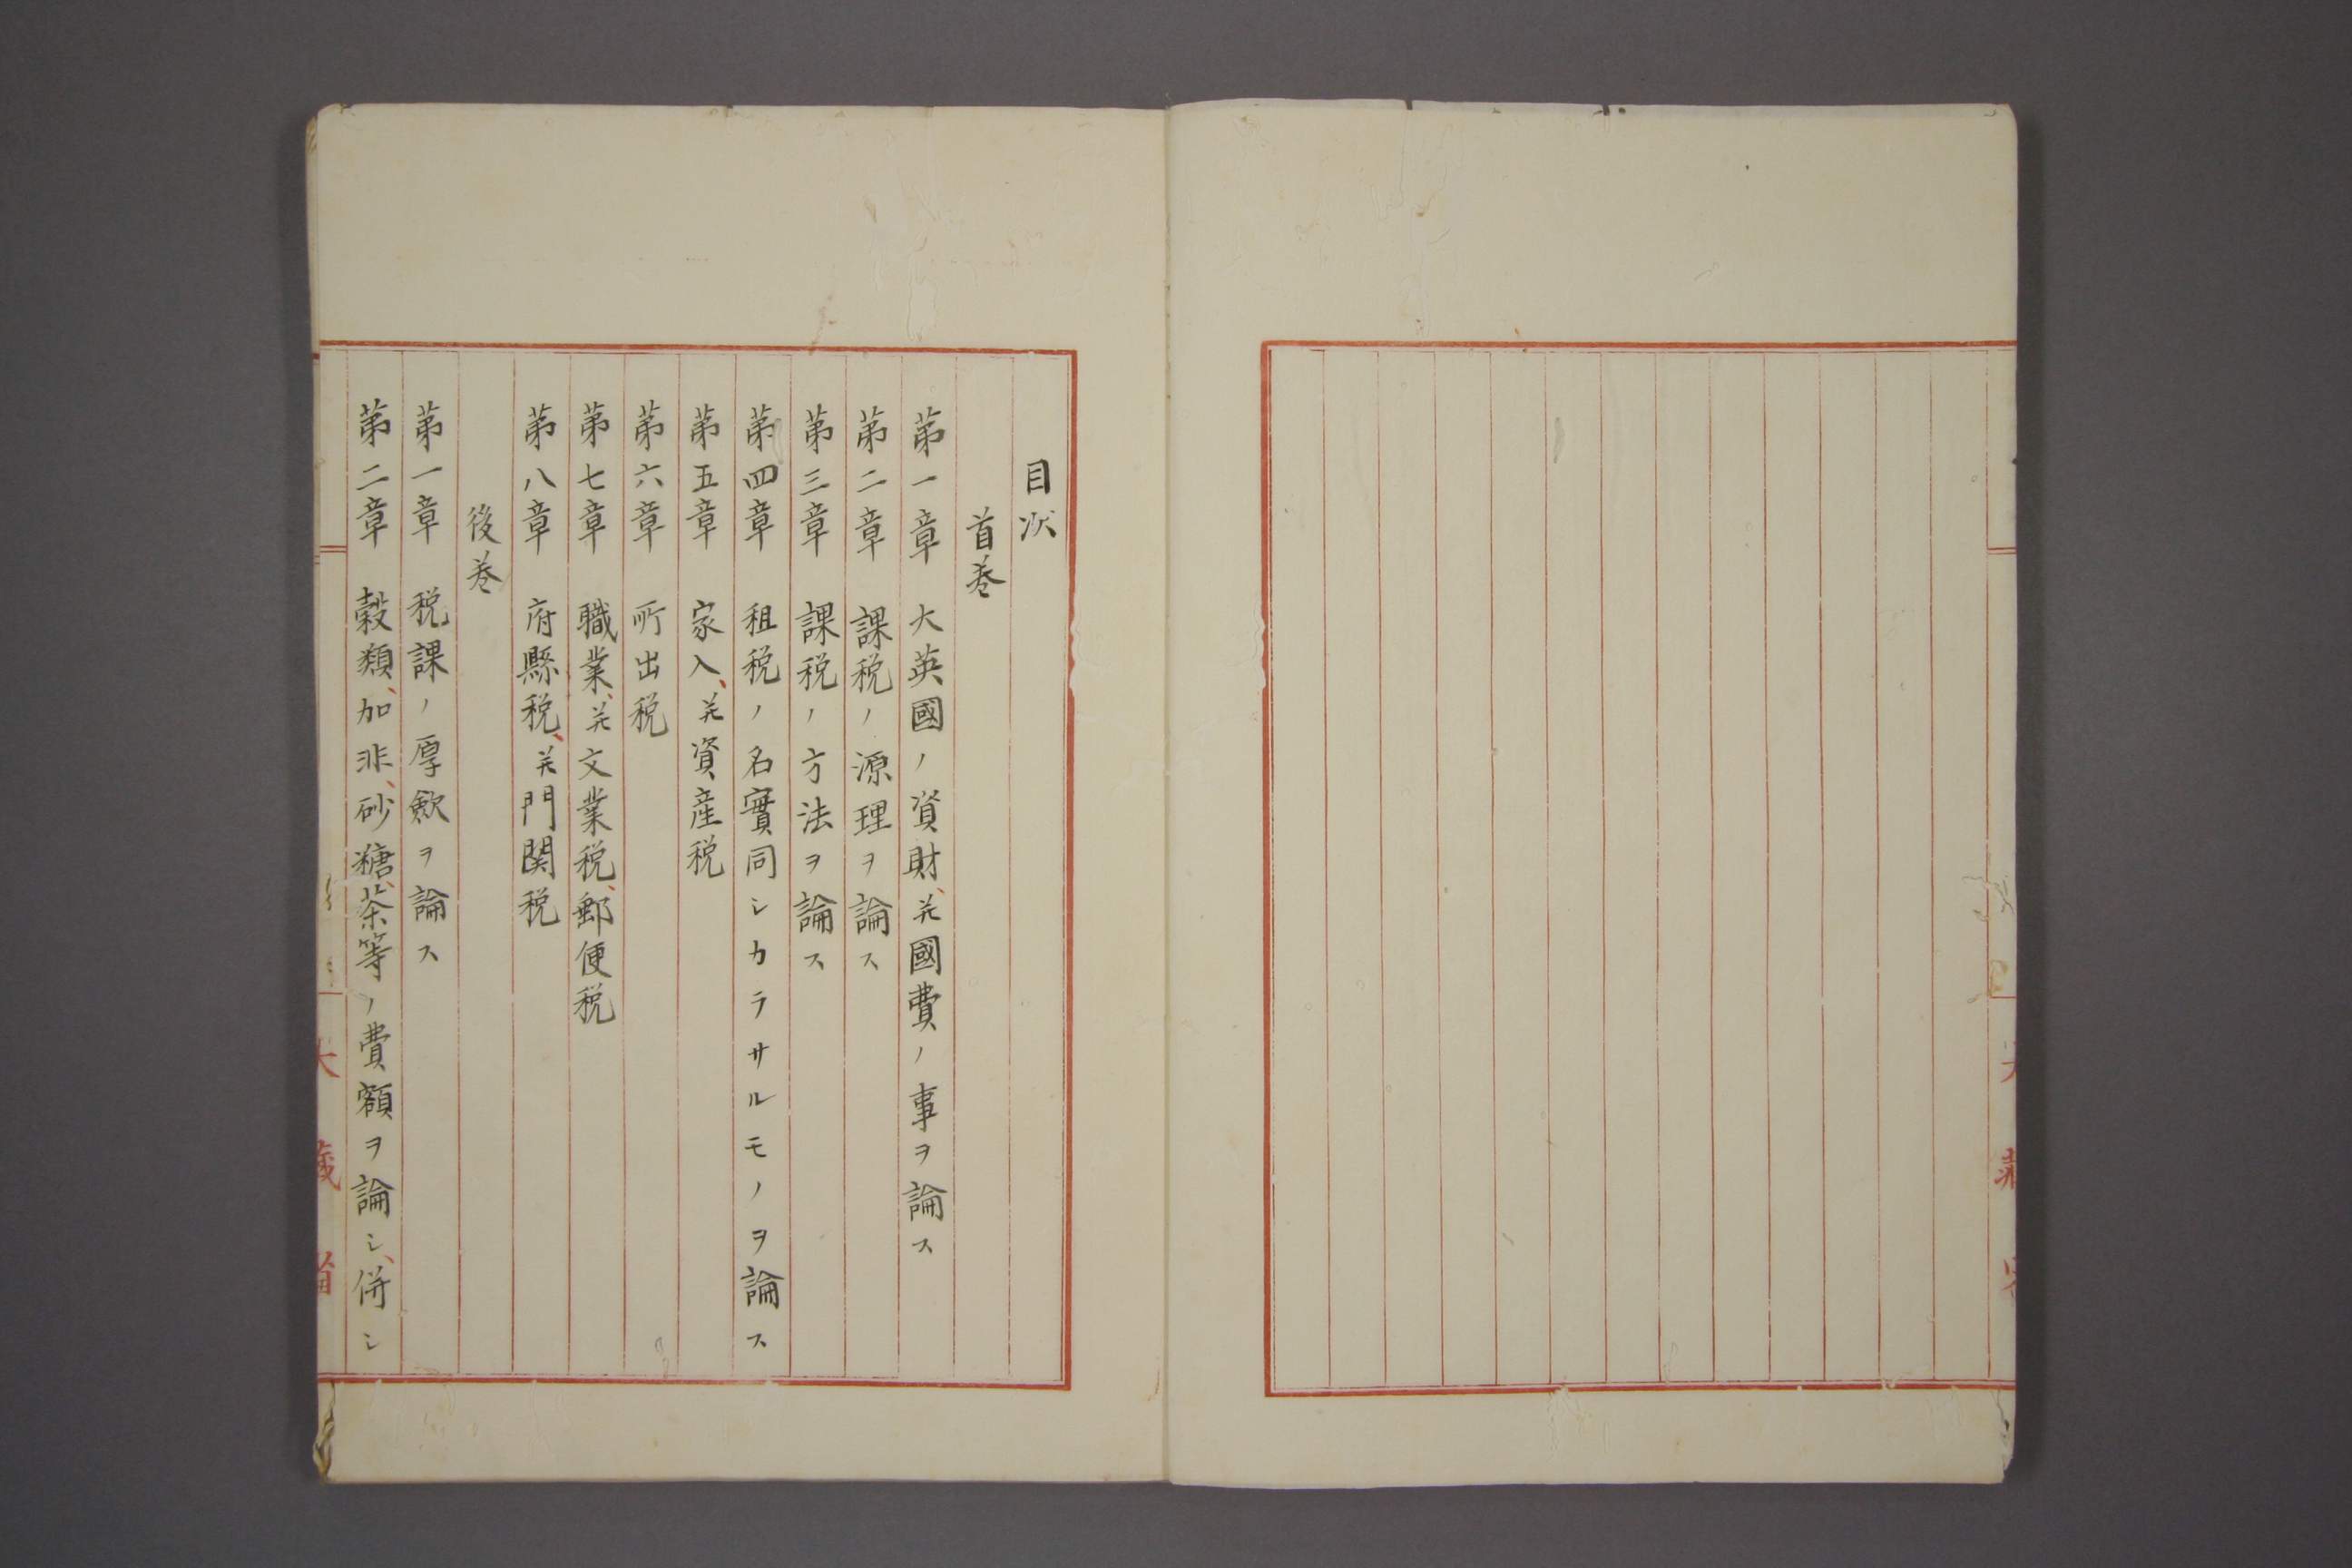 目次
首巻
第一章 大英國ノ資財、并國費ノ事ヲ論ス
第二章 課税ノ源理ヲ論ス
第三章 課税ノ方法ヲ論ス
第四章 租税ノ名實同シカラサルモノヲ論ス
第五章 家入、并資産税
第六章 所出税
第七章 職業、并文業税、郵便税
第八章 府縣税、并門関税
後巻
第一章 税課ノ厚歛ヲ論ス
第二章 穀類、加非、砂糖、茶等ノ費額ヲ論シ、併シ
大藏省